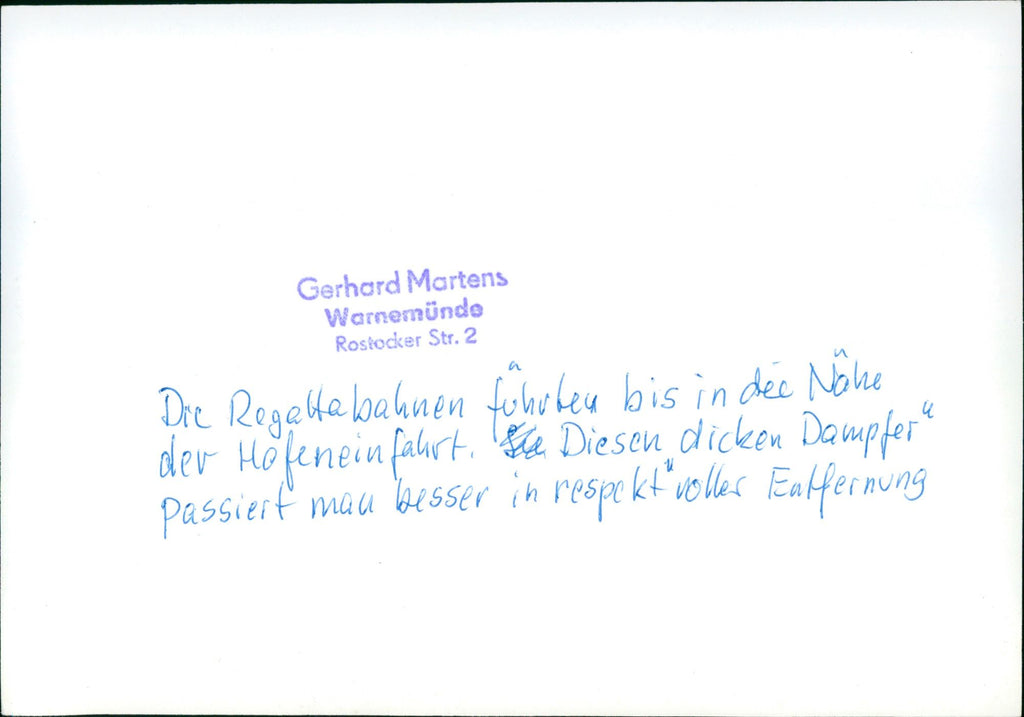 Gerhard Martens
Warnemünde
Rostocker Str. 2
Die Regattabahnen führten bis in die Nähe
der Hafeneinfahrt. Diesen dicken Dampfer"
passiert man besser in respekt"voller Entfernung